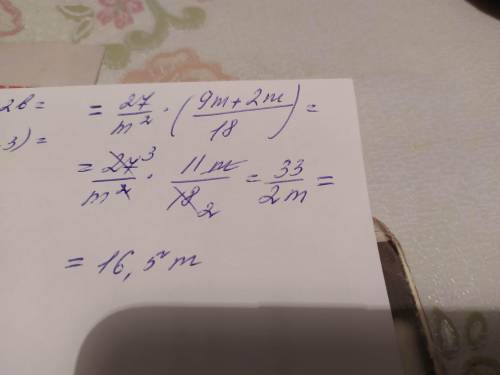 2b = = 27/m² · (9m + 2m / 18) =
3) = = 27³/m² · 11m/18₂ = 33/2m =
= 16,5m